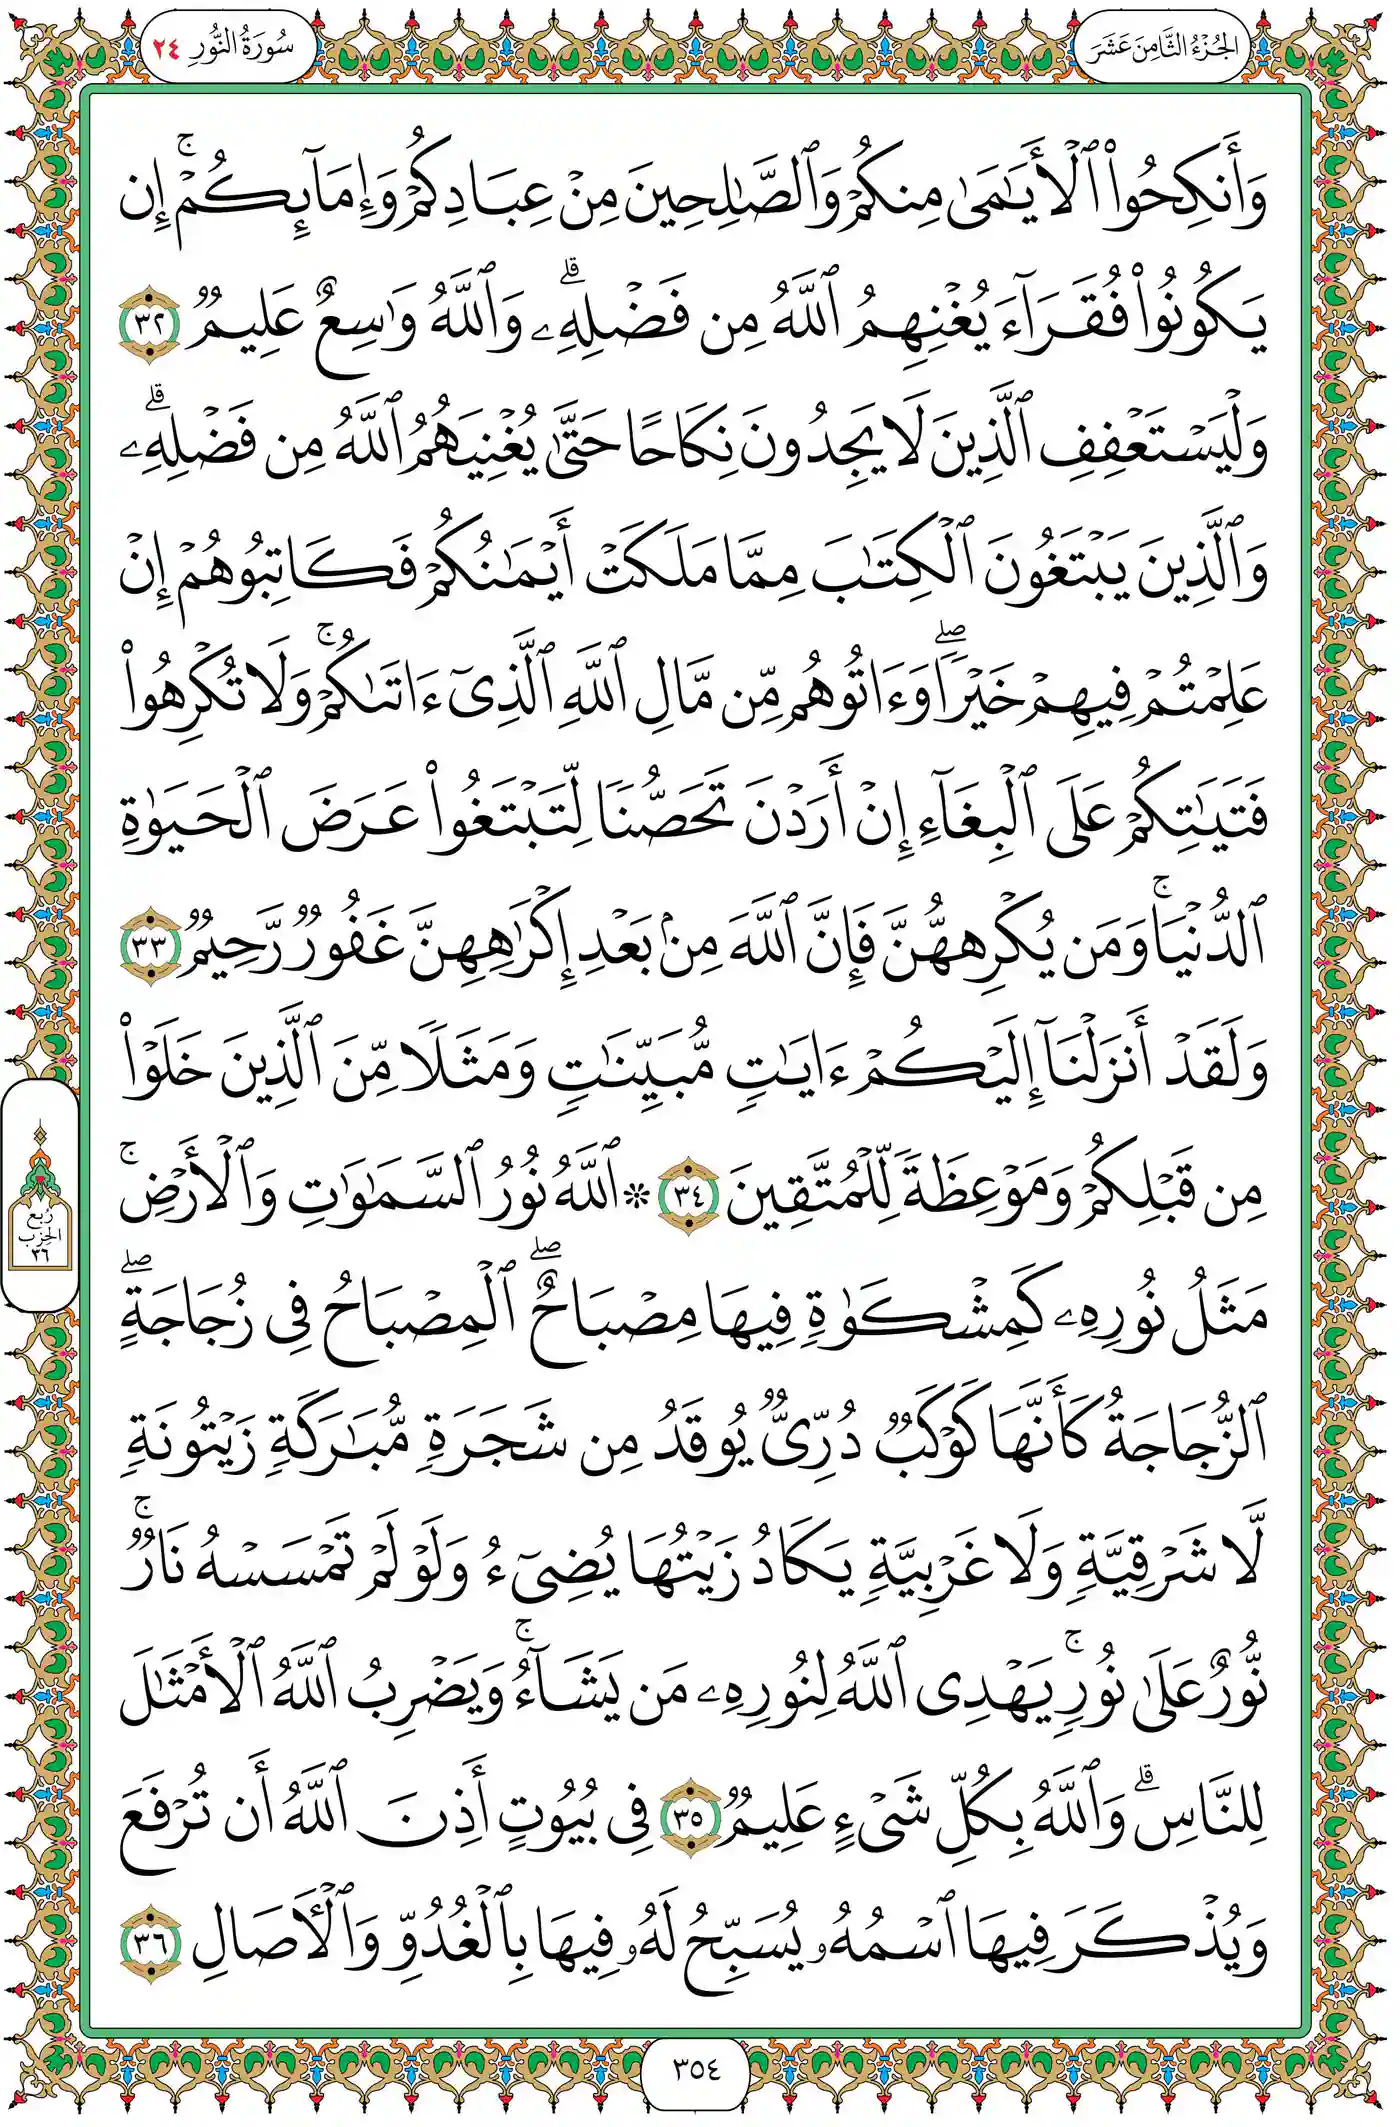 الجُزْءُ الثَّامِنَ عَشَرَ
سُورَةُ النُّورِ ٢٤
وَأَنكِحُوا۟ ٱلْأَيَـٰمَىٰ مِنكُمْ وَٱلصَّـٰلِحِينَ مِنْ عِبَادِكُمْ وَإِمَآئِكُمْ ۚ إِن
يَكُونُوا۟ فُقَرَآءَ يُغْنِهِمُ ٱللَّهُ مِن فَضْلِهِۦ ۗ وَٱللَّهُ وَٰسِعٌ عَلِيمٌ ٣٢
وَلْيَسْتَعْفِفِ ٱلَّذِينَ لَا يَجِدُونَ نِكَاحًا حَتَّىٰ يُغْنِيَهُمُ ٱللَّهُ مِن فَضْلِهِۦ ۗ
وَٱلَّذِينَ يَبْتَغُونَ ٱلْكِتَـٰبَ مِمَّا مَلَكَتْ أَيْمَـٰنُكُمْ فَكَاتِبُوهُمْ إِنْ
عَلِمْتُمْ فِيهِمْ خَيْرًا ۖ وَءَاتُوهُم مِّن مَّالِ ٱللَّهِ ٱلَّذِىٓ ءَاتَىٰكُمْ ۚ وَلَا تُكْرِهُوا۟
فَتَيَـٰتِكُمْ عَلَى ٱلْبِغَآءِ إِنْ أَرَدْنَ تَحَصُّنًا لِّتَبْتَغُوا۟ عَرَضَ ٱلْحَيَوٰةِ
ٱلدُّنْيَا ۚ وَمَن يُكْرِههُّنَّ فَإِنَّ ٱللَّهَ مِنۢ بَعْدِ إِكْرَٰهِهِنَّ غَفُورٌ رَّحِيمٌ ٣٣
وَلَقَدْ أَنزَلْنَآ إِلَيْكُمْ ءَايَـٰتٍ مُّبَيِّنَـٰتٍ وَمَثَلًا مِّنَ ٱلَّذِينَ خَلَوْا۟
مِن قَبْلِكُمْ وَمَوْعِظَةً لِّلْمُتَّقِينَ ٣٤ ۞ ٱللَّهُ نُورُ ٱلسَّمَـٰوَٰتِ وَٱلْأَرْضِ ۚ
مَثَلُ نُورِهِۦ كَمِشْكَوٰةٍ فِيهَا مِصْبَاحٌ ۖ ٱلْمِصْبَاحُ فِى زُجَاجَةٍ ۖ
ٱلزُّجَاجَةُ كَأَنَّهَا كَوْكَبٌ دُرِّىٌّ يُوقَدُ مِن شَجَرَةٍ مُّبَـٰرَكَةٍ زَيْتُونَةٍ
لَّا شَرْقِيَّةٍ وَلَا غَرْبِيَّةٍ يَكَادُ زَيْتُهَا يُضِىٓءُ وَلَوْ لَمْ تَمْسَسْهُ نَارٌ ۚ
نُّورٌ عَلَىٰ نُورٍ ۗ يَهْدِى ٱللَّهُ لِنُورِهِۦ مَن يَشَآءُ ۚ وَيَضْرِبُ ٱللَّهُ ٱلْأَمْثَـٰلَ
لِلنَّاسِ ۗ وَٱللَّهُ بِكُلِّ شَىْءٍ عَلِيمٌ ٣٥ فِى بُيُوتٍ أَذِنَ ٱللَّهُ أَن تُرْفَعَ
وَيُذْكَرَ فِيهَا ٱسْمُهُۥ يُسَبِّحُ لَهُۥ فِيهَا بِٱلْغُدُوِّ وَٱلْـَٔاصَالِ ٣٦
رُبع
الحِزْب
٣٦
٣٥٤